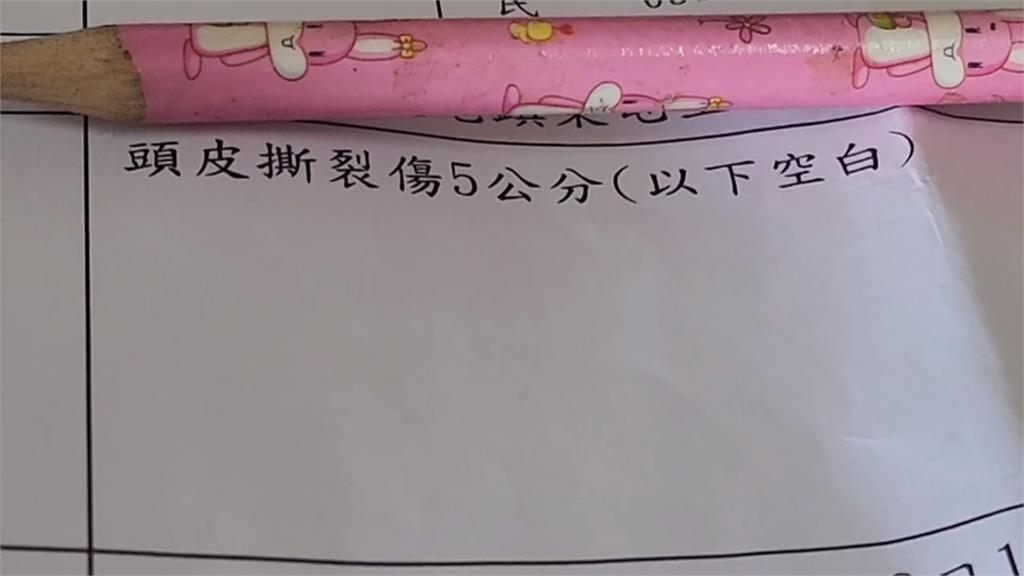 民
頭皮撕裂傷5公分(以下空白)